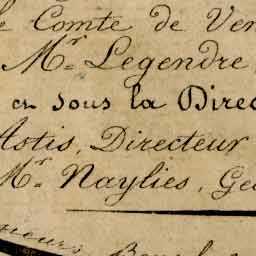 le Comte de Ven
Mr. Legendre
en sous la Direc
Astis, Directeur
Mr. Naylies, Geo